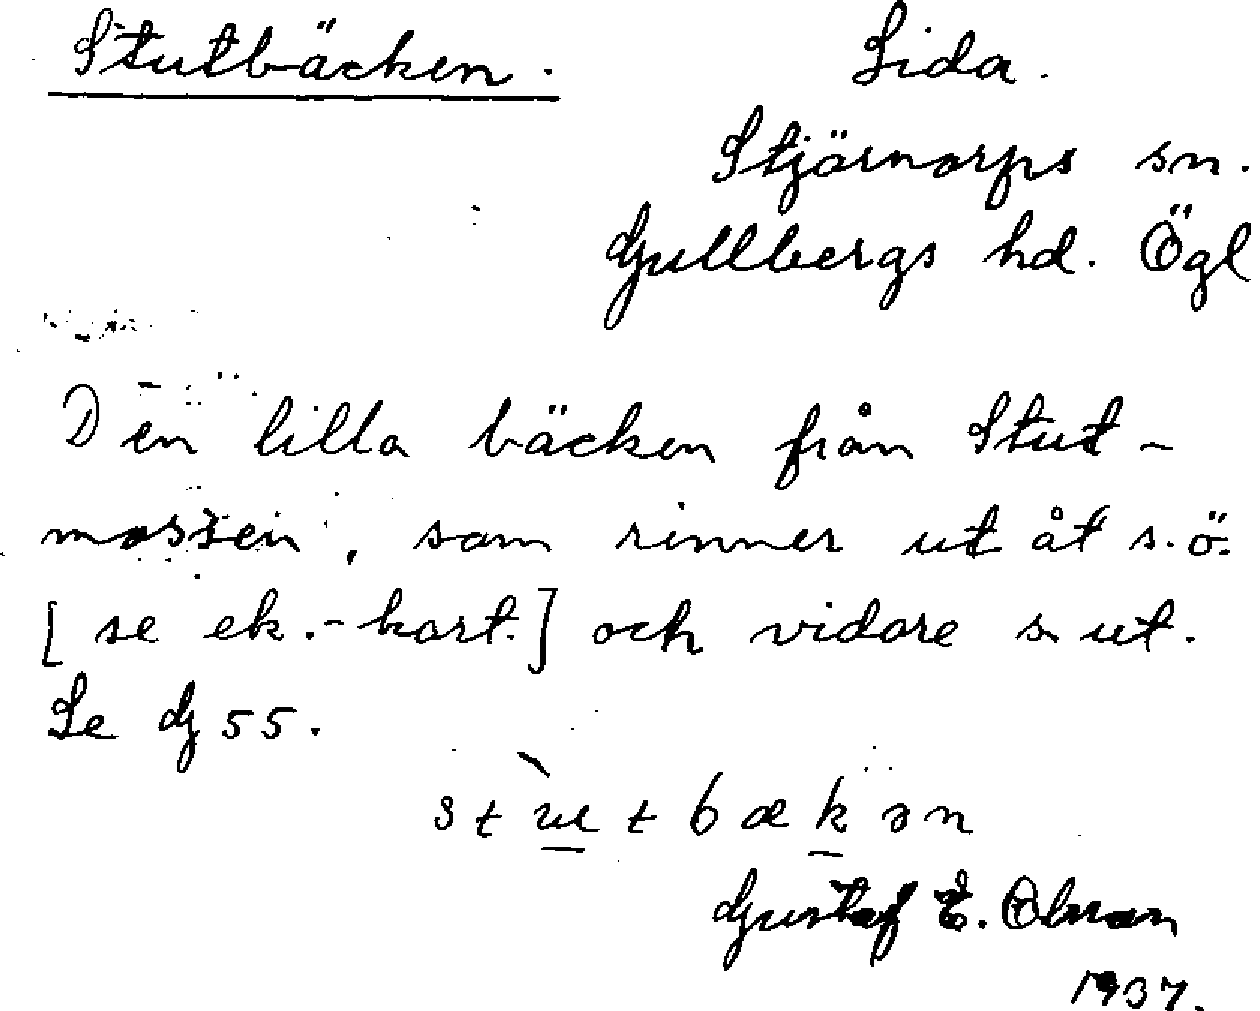 Stutbäcken. Sida.
Stjärnorps sn.
Gullbergs hd. Ögl
Den lilla bäcken från Stut-
mossen, som rinner ut åt s.ö.
[se ek.-kart.] och vidare s ut.
Se G 55.
stu̲t bæk̲ən
Gustaf E. Olsson
1937.